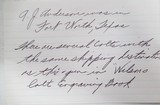 A. J. Anderson was in
Fort Worth, Texas
There are several Colts with
the same shipping destination
as this one in Wilsons
Colt Engraving Book